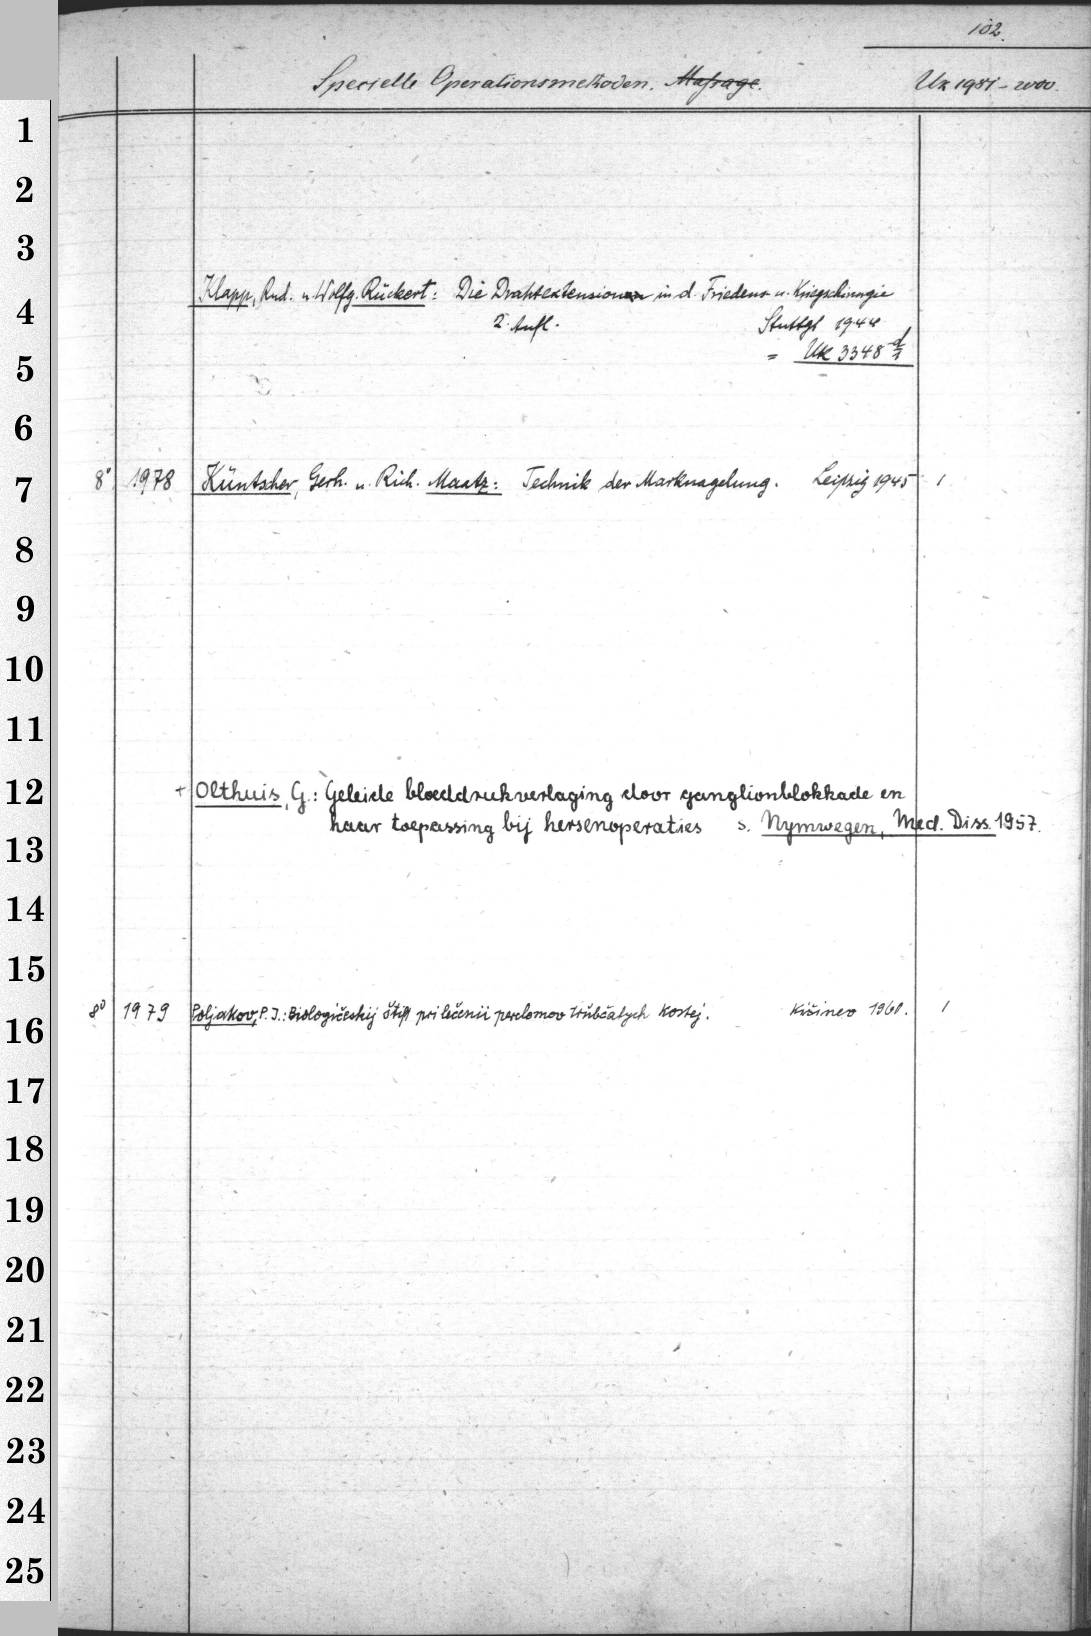 102.
Specielle Operationsmethoden. Massage. Uk 1981-2000.
1
2
3
Klapp, Rud. u. Wolfg. Rückert: Die Drahtextension in d. Friedens u. Kriegschirurgie
4
2. Aufl. Stuttgt 1944
= Uk 3348
5
6
7
8° 1978 Küntscher, Gerh. u. Rich. Maatz: Technik der Marknagelung. Leipzig 1945 1
8
9
10
11
12
+ Olthuis, G.: Geleide bloeddrukverlaging door ganglionblokkade en
haar toepassing bij hersenoperaties s. Nymwegen, Med. Diss. 1957.
13
14
15
8° 1979 Poljakov, P. I.: Biologičeskij štift pri lečenii perelomov trubčatych kostej. Kišinev 1960. 1
16
17
18
19
20
21
22
23
24
25